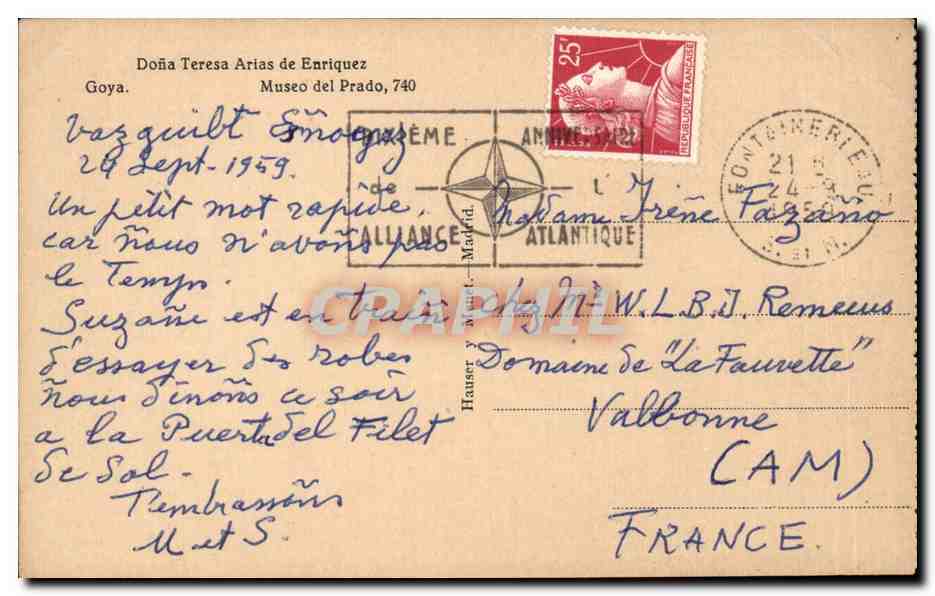 Doña Teresa Arias de Enriquez
Goya. Museo del Prado, 740
25F
REPUBLIQUE FRANÇAISE
DIXIÈME ANNIVERSAIRE
de l'
ALLIANCE ATLANTIQUE
FONTAINEBLEAU
21 H
24-9
1959
S. ET M.
Sept-1959.
Un petit mot rapide,
car ñous n'avoñs pas
le Temps.
Suzañe est en train
d'essayer des robes
ñous dinoñs ce soir
a la Puerta del Filet
de Sol-
T'embrassoñs
M et S.
Hauser y Menet.-Madrid.
Madame Irène Fazano
chez Mr W.L.B.J. Remecus
Domaine de "La Fauvette"
Valbonne
(AM)
FRANCE.
CRAPHIL